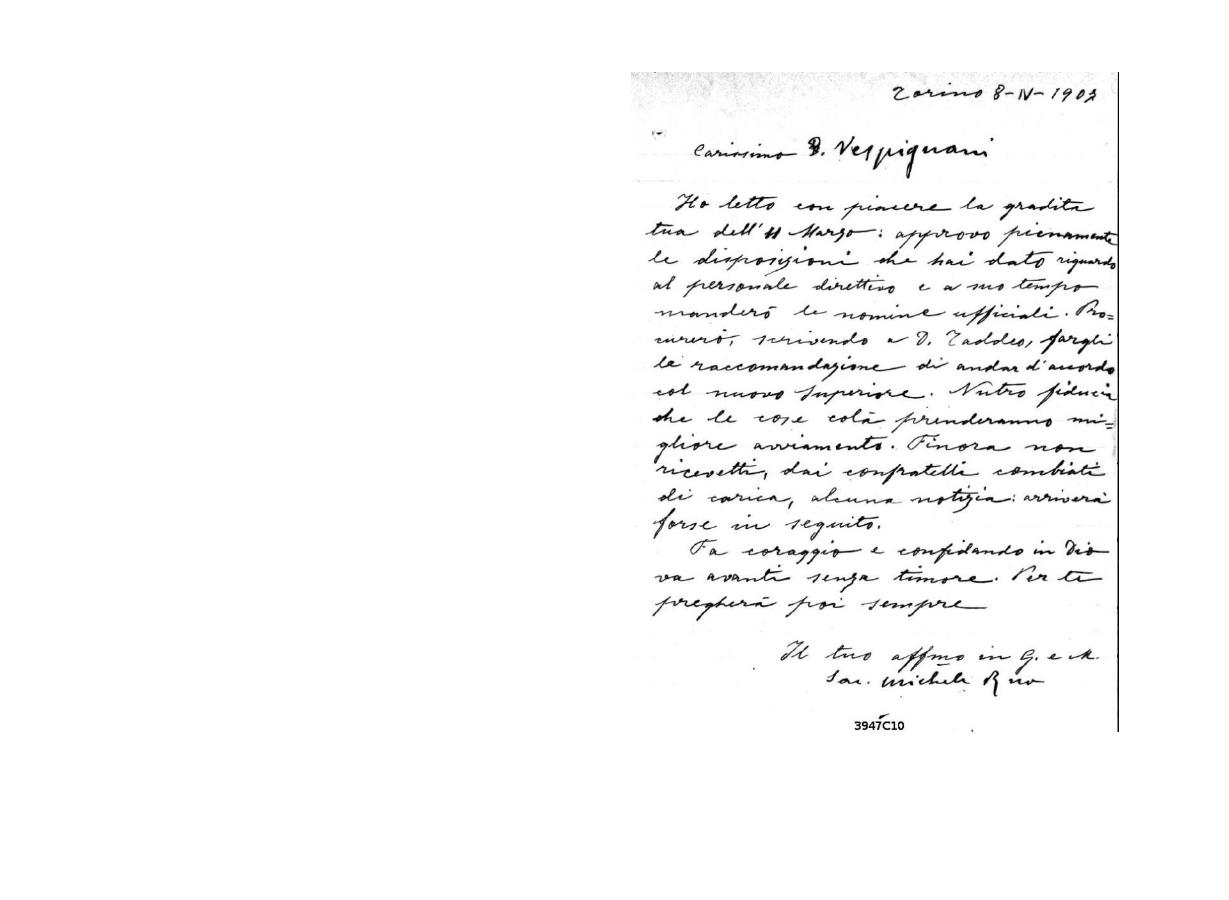 Torino 8-IV-1903
Carissimo D. Vespignani
Ho letto con piacere la gradita
tua dell'11 Marzo: approvo pienamente
le disposizioni che hai dato riguardo
al personale direttivo e a suo tempo
manderò le nomine ufficiali. Pro=
curerò, scrivendo a D. Taddeo, fargli
la raccomandazione di andar d'accordo
col nuovo Superiore. Nutro fiducia
che le cose colà prenderanno mi=
gliore avviamento. Finora non
ricevetti, dai confratelli cambiati
di carica, alcuna notizia: arriverà
forse in seguito.
Fa coraggio e confidando in Dio
va avanti senza timore. Per te
pregherà poi sempre
Il tuo affmo in G. e M.
Sac. Michele Rua
3947C10